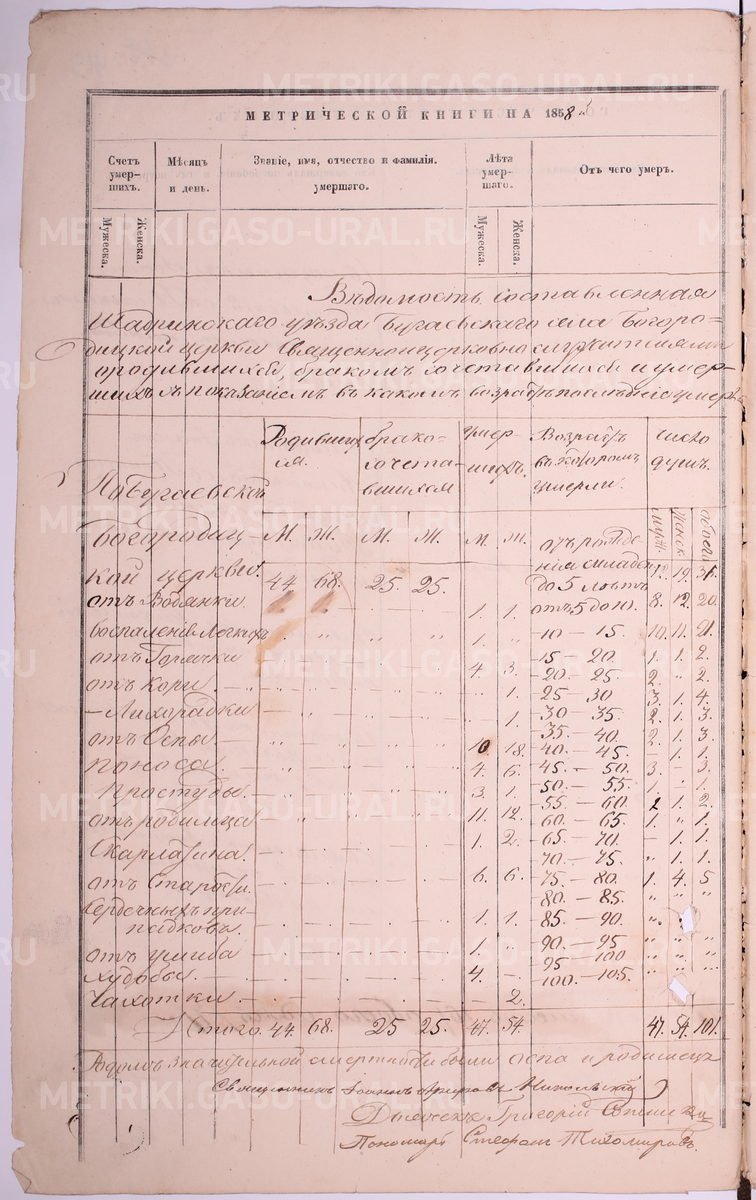 МЕТРИЧЕСКОЙ КНИГИ НА 1858 й
Счетъ умер-шихъ. Мѣсяцъ и день. Званіе, имя, отчество и фамилія. умершаго. Лѣта умер-шаго. Отъ чего умеръ.
Мужеска. Женска. Мужеска. Женска.
Вѣдомость составленная
Шадринскаго уѣзда Бугаевскаго села Богоро=
дицкой церкви Священноцерковнослужителями
о родившихся, бракомъ сочетавшихся и умер-
шихъ съ показаніемъ въ какомъ возрастѣ послѣдніе умерли
Родивших- ся. брако- сочета- вшихся умер- шихъ. Возрастъ въ которомъ умерли. число душъ.
По Бугаевской
Богородиц- М. Ж. М. Ж. М. Ж. отъ рожде- муж. женск. обоего
кой церкви. 44. 68. 25. 25. нія младен. до 5 лѣтъ 12. 19. 31.
отъ Водянки 1. 1. отъ 5 до 10. 8. 12. 20.
воспаленія Легкихъ 1. „ 10 – 15. 10. 11. 21.
отъ Горячки 4. 3. 15 – 20. 1. 1. 2.
отъ кори „ 1. 20. – 25. 2. „ 2.
– Лихорадки 1. 25 – 30 3. 1. 4.
отъ Оспы 10 18. 30 35. 2. 1. 3.
поноса 4. 6. 35 – 40. 2. 1. 3.
простуды 3. 1. 40. – 45. – 1. 1.
отъ родимца 11. 12. 45. – 50. 3. – 3.
Скарлатина. 1. 2. 50. – 55. 1. – 1.
отъ Старости 6. 6. 55. – 60. 2 1. 2.
Сердечныхъ при-
падковъ. 1. 1. 60. – 65. 1. „ 1.
отъ ушиба 1. „ 65. – 70. – 1. 1.
худобы 4. – 70. – 75. „ 1. 1.
Чахотки 2. 75. – 80. 1. 4. 5
80. – 85. „ „ „
85. – 90.
90. – 95 „ „ „
95 100 „ „ „
100. – 105.
Итого. 44. 68. 25 25. 47. 54. 47. 54. 101.
значительной смертности были оспа и родимецъ
Священникъ Іоаннъ Никольскій
Дьячекъ Григорій
Пономарь Стефанъ Тихомировъ.
METRIKI.GASO-URAL.RU